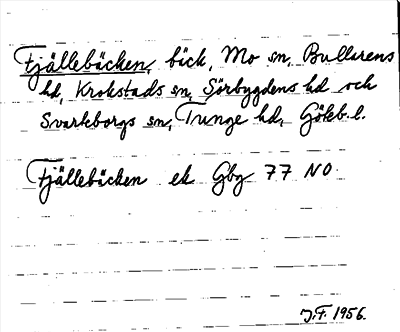 Fjällebäcken, bäck, Mo sn, Bullarens
hd, Krokstads sn, Sörbygdens hd och
Svarteborgs sn, Tunge hd, Göteb. l.
Fjällebäcken ek Gbg 77 NO.
J.F. 1956.